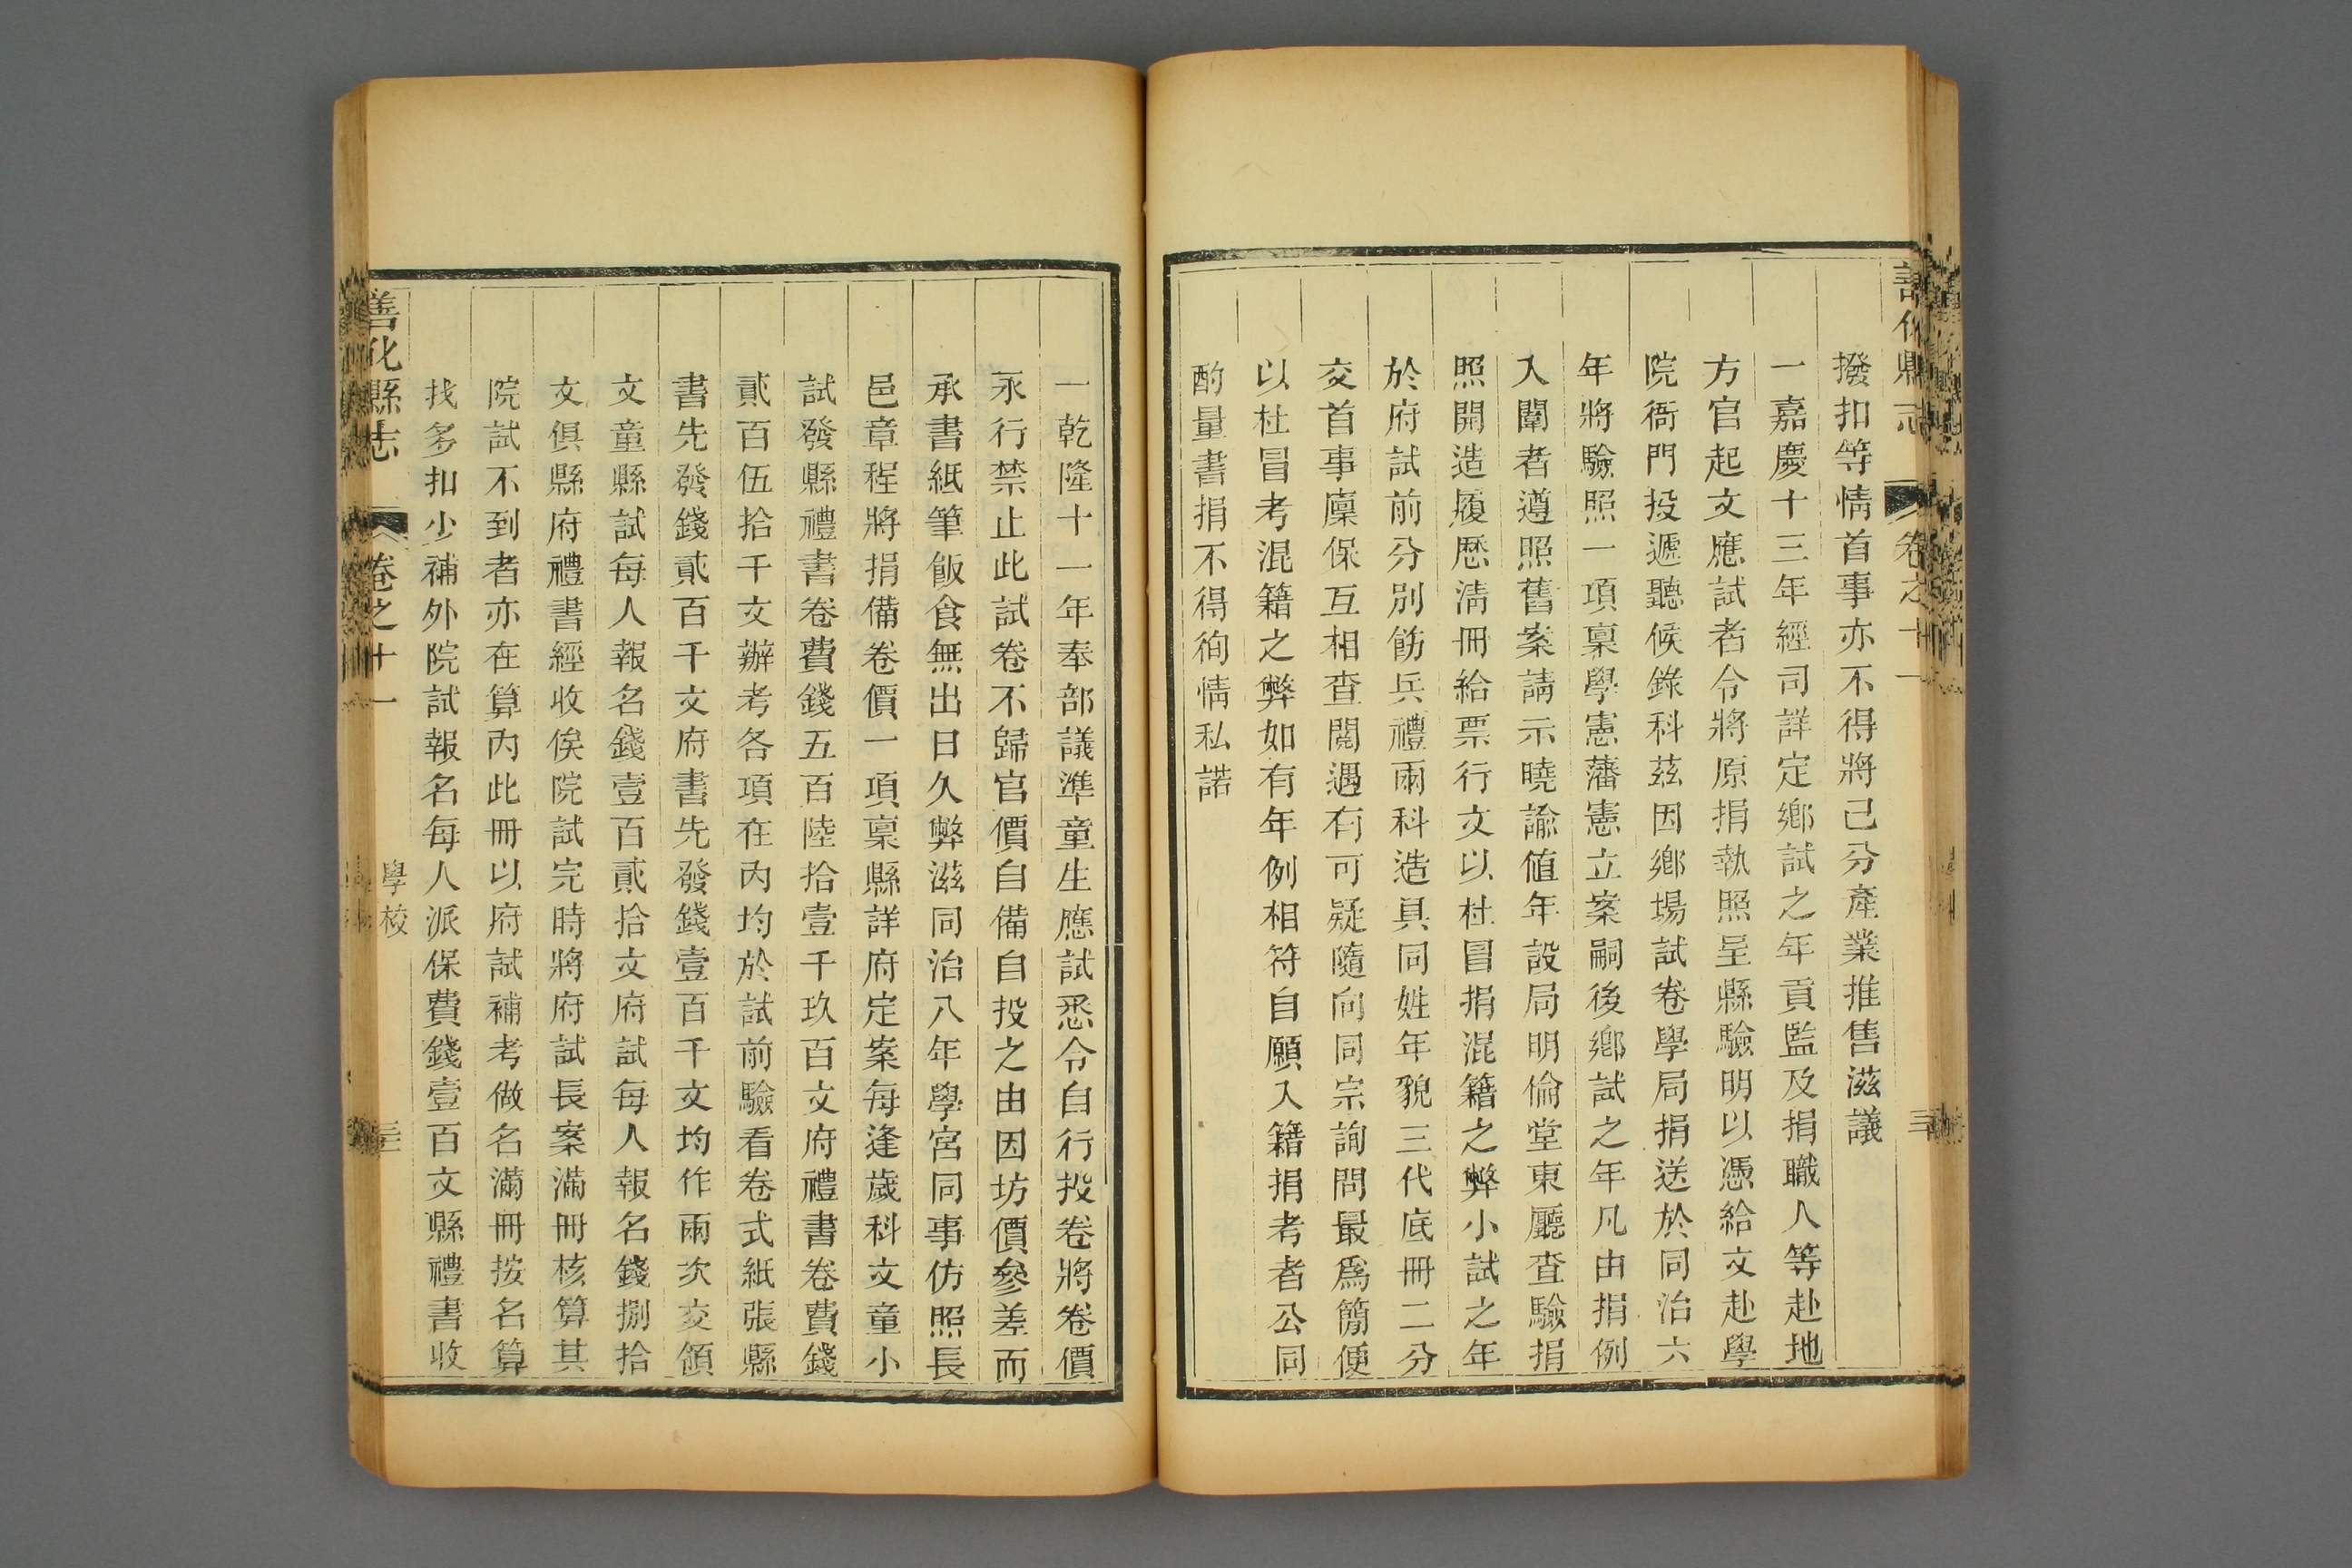 善化縣志 卷之十一
撥扣等情首事亦不得將己分產業推售滋議
一嘉慶十三年經司詳定鄉試之年貢監及捐職人等赴地
方官起文應試者令將原捐執照呈縣驗明以憑給文赴學
院衙門投遞聽候錄科茲因鄉場試卷學局捐送於同治六
年將驗照一項稟學憲藩憲立案嗣後鄉試之年凡由捐例
入闈者遵照舊案請示曉諭値年設局明倫堂東廳查驗捐
照開造履歷清冊給票行文以杜冒捐混籍之弊小試之年
於府試前分別飭兵禮兩科造具同姓年貌三代底冊二分
交首事廩保互相查閱遇有可疑隨向同宗詢問最爲簡便
以杜冒考混籍之弊如有年例相符自願入籍捐考者公同
酌量書捐不得徇情私諾
一乾隆十一年奉部議準童生應試悉令自行投卷將卷價
永行禁止此試卷不歸官價自備自投之由因坊價參差而
承書紙筆飯食無出日久弊滋同治八年學宮同事仿照長
邑章程將捐備卷價一項稟縣詳府定案每逢歲科文童小
試發縣禮書卷費錢五百陸拾壹千玖百文府禮書卷費錢
貳百伍拾千文辦考各項在內均於試前驗看卷式紙張縣
書先發錢貳百千文府書先發錢壹百千文均作兩次交領
文童縣試每人報名錢壹百貳拾文府試每人報名錢捌拾
文俱縣府禮書經收俟院試完時將府試長案滿冊核算其
院試不到者亦在算內此冊以府試補考做名滿冊按名算
找多扣少補外院試報名每人派保費錢壹百文縣禮書收
善化縣志 卷之十一 學校